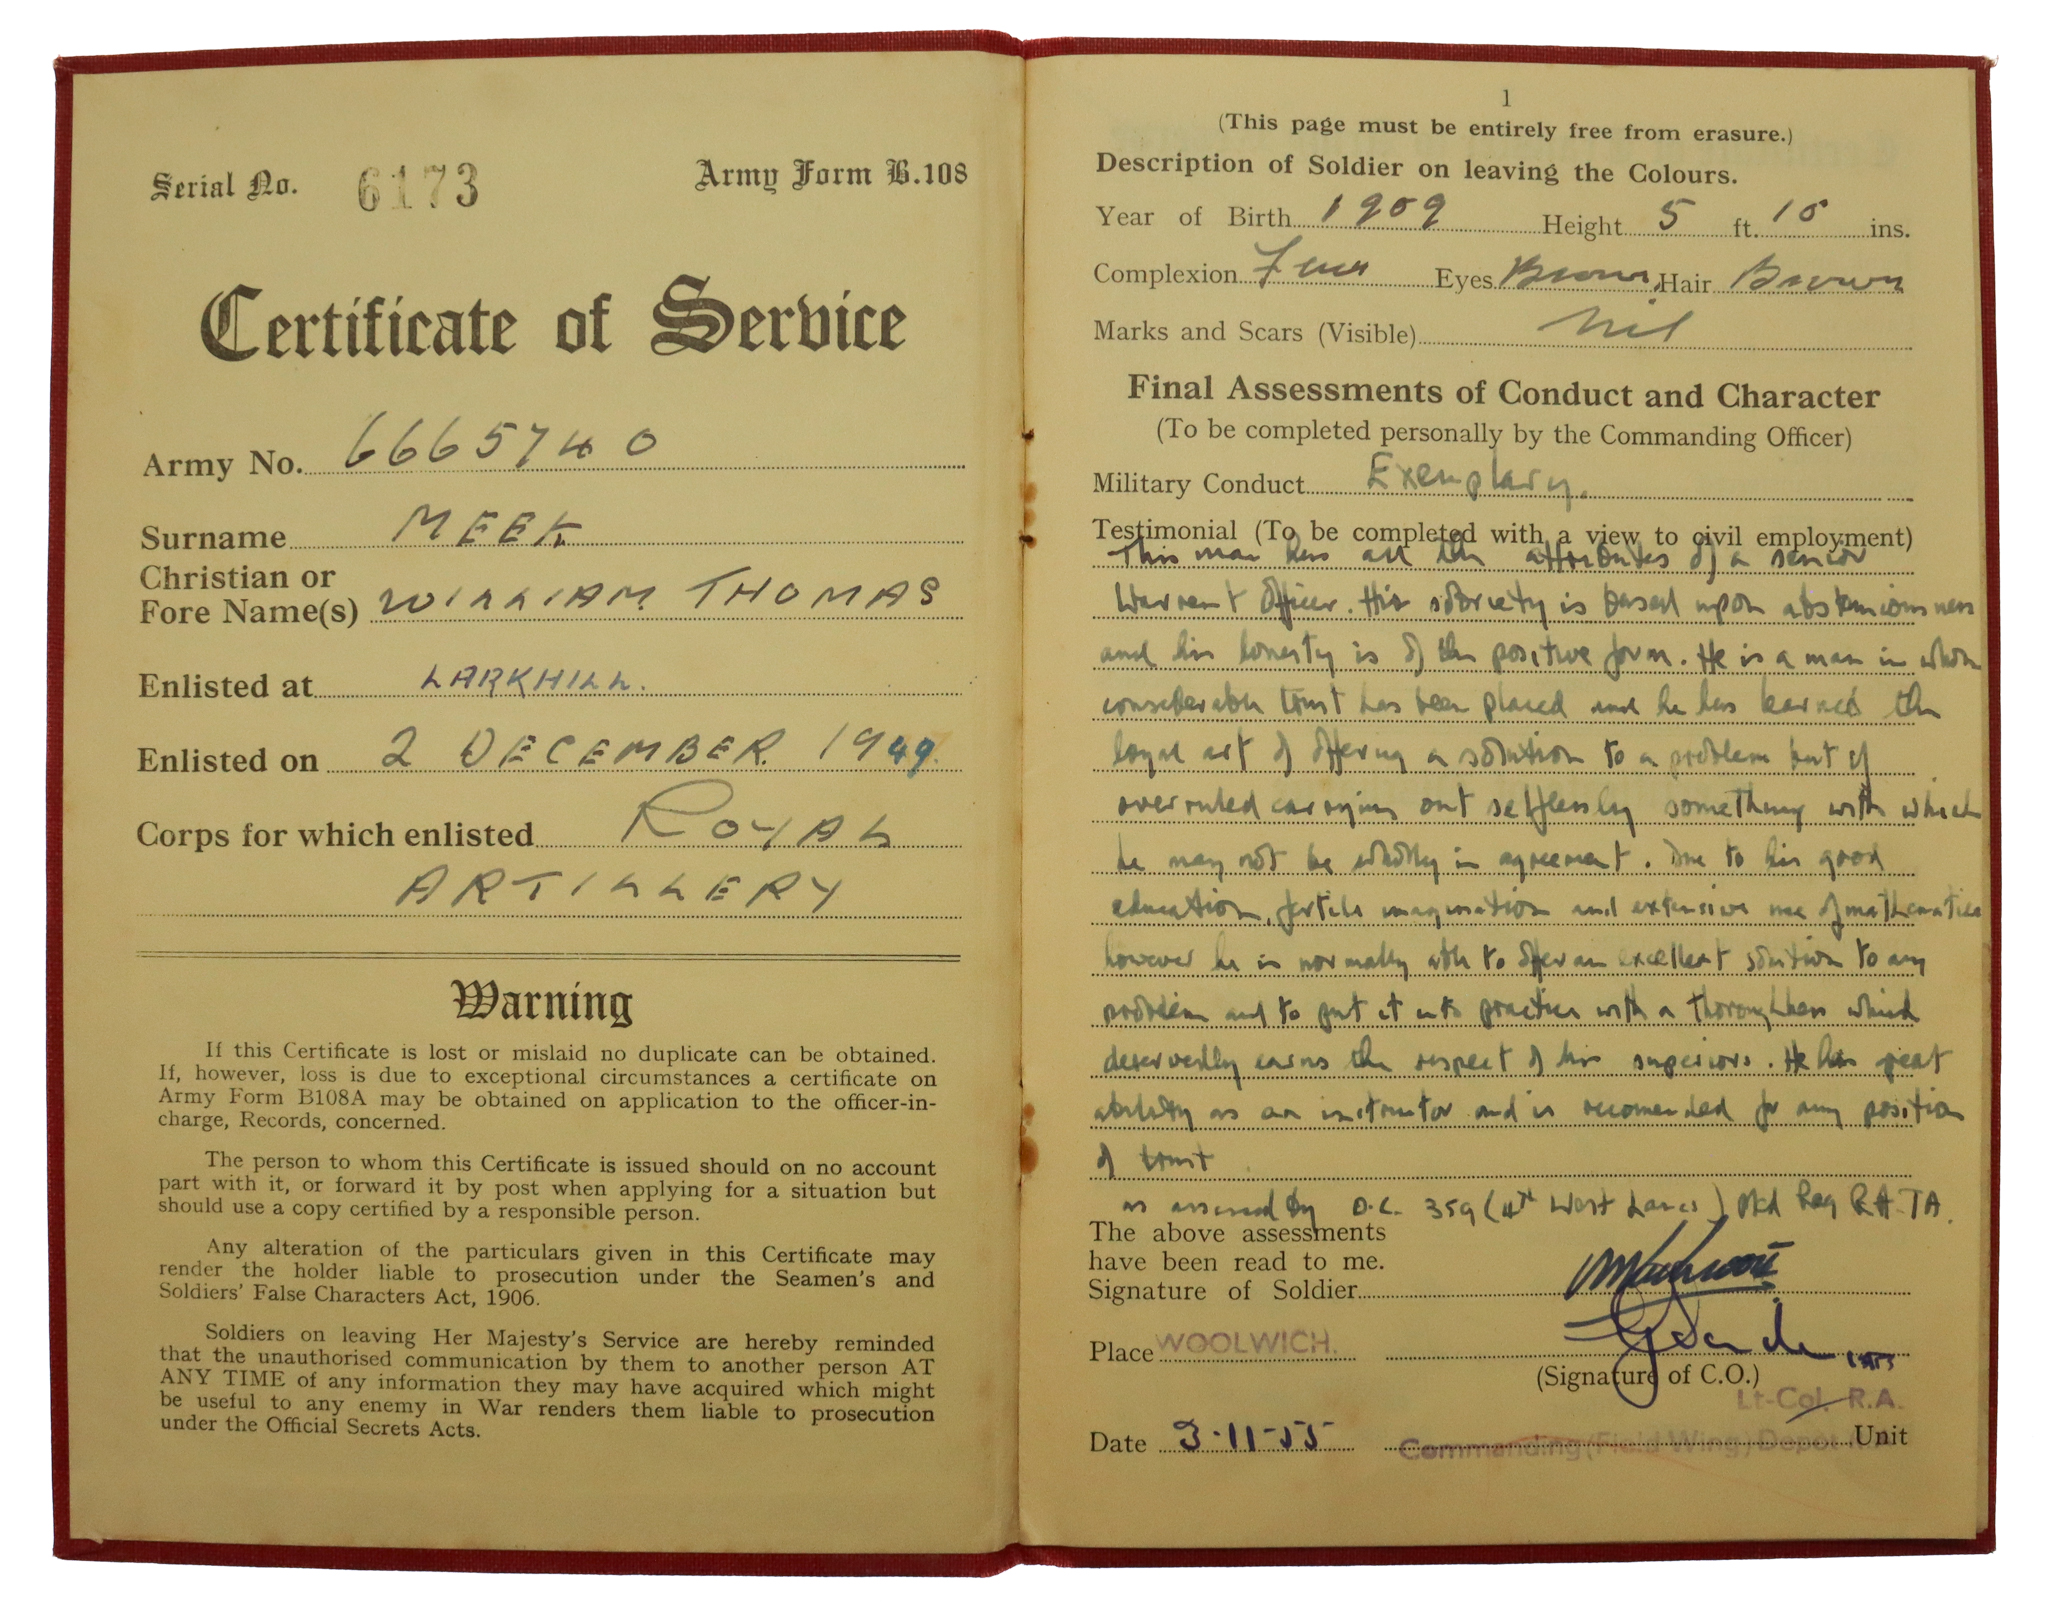 Serial No. 6173 Army Form B.108
Certificate of Service
Army No. 6665740
Surname MEEK
Christian or
Fore Name(s) WILLIAM THOMAS
Enlisted at LARKHILL.
Enlisted on 2 DECEMBER. 1949.
Corps for which enlisted ROYAL
ARTILLERY
Warning
If this Certificate is lost or mislaid no duplicate can be obtained.
If, however, loss is due to exceptional circumstances a certificate on
Army Form B108A may be obtained on application to the officer-in-
charge, Records, concerned.
The person to whom this Certificate is issued should on no account
part with it, or forward it by post when applying for a situation but
should use a copy certified by a responsible person.
Any alteration of the particulars given in this Certificate may
render the holder liable to prosecution under the Seamen's and
Soldiers' False Characters Act, 1906.
Soldiers on leaving Her Majesty's Service are hereby reminded
that the unauthorised communication by them to another person AT
ANY TIME of any information they may have acquired which might
be useful to any enemy in War renders them liable to prosecution
under the Official Secrets Acts.
1
(This page must be entirely free from erasure.)
Description of Soldier on leaving the Colours.
Year of Birth 1909 Height 5 ft. 10 ins.
Complexion Eyes Brown Hair Brown
Marks and Scars (Visible) Nil
Final Assessments of Conduct and Character
(To be completed personally by the Commanding Officer)
Military Conduct Exemplary.
Testimonial (To be completed with a view to civil employment)
This man has all the attributes of a senior
Warrant Officer. His sobriety is based upon abstemiousness
and his honesty is of the positive form. He is a man in whom
considerable trust has been placed and he has learned the
loyal art of offering a solution to a problem but if
overruled carrying out selflessly something with which
he may not be wholly in agreement. Due to his good
education, fertile imagination and extensive use of mathematics
however he is normally able to offer an excellent solution to any
problem and to put it into practice with a thoroughness which
deservedly earns the respect of his superiors. He has great
ability as an instructor and is recomended for any position
of trust
as assessed by O.C. 359 (4th West Lancs) Med Reg RA TA.
The above assessments
have been read to me.
Signature of Soldier
Place WOOLWICH.
(Signature of C.O.)
Lt-Col. R.A.
Date 3-11-55 Commanding (Field Wing) Depot R.A. Unit